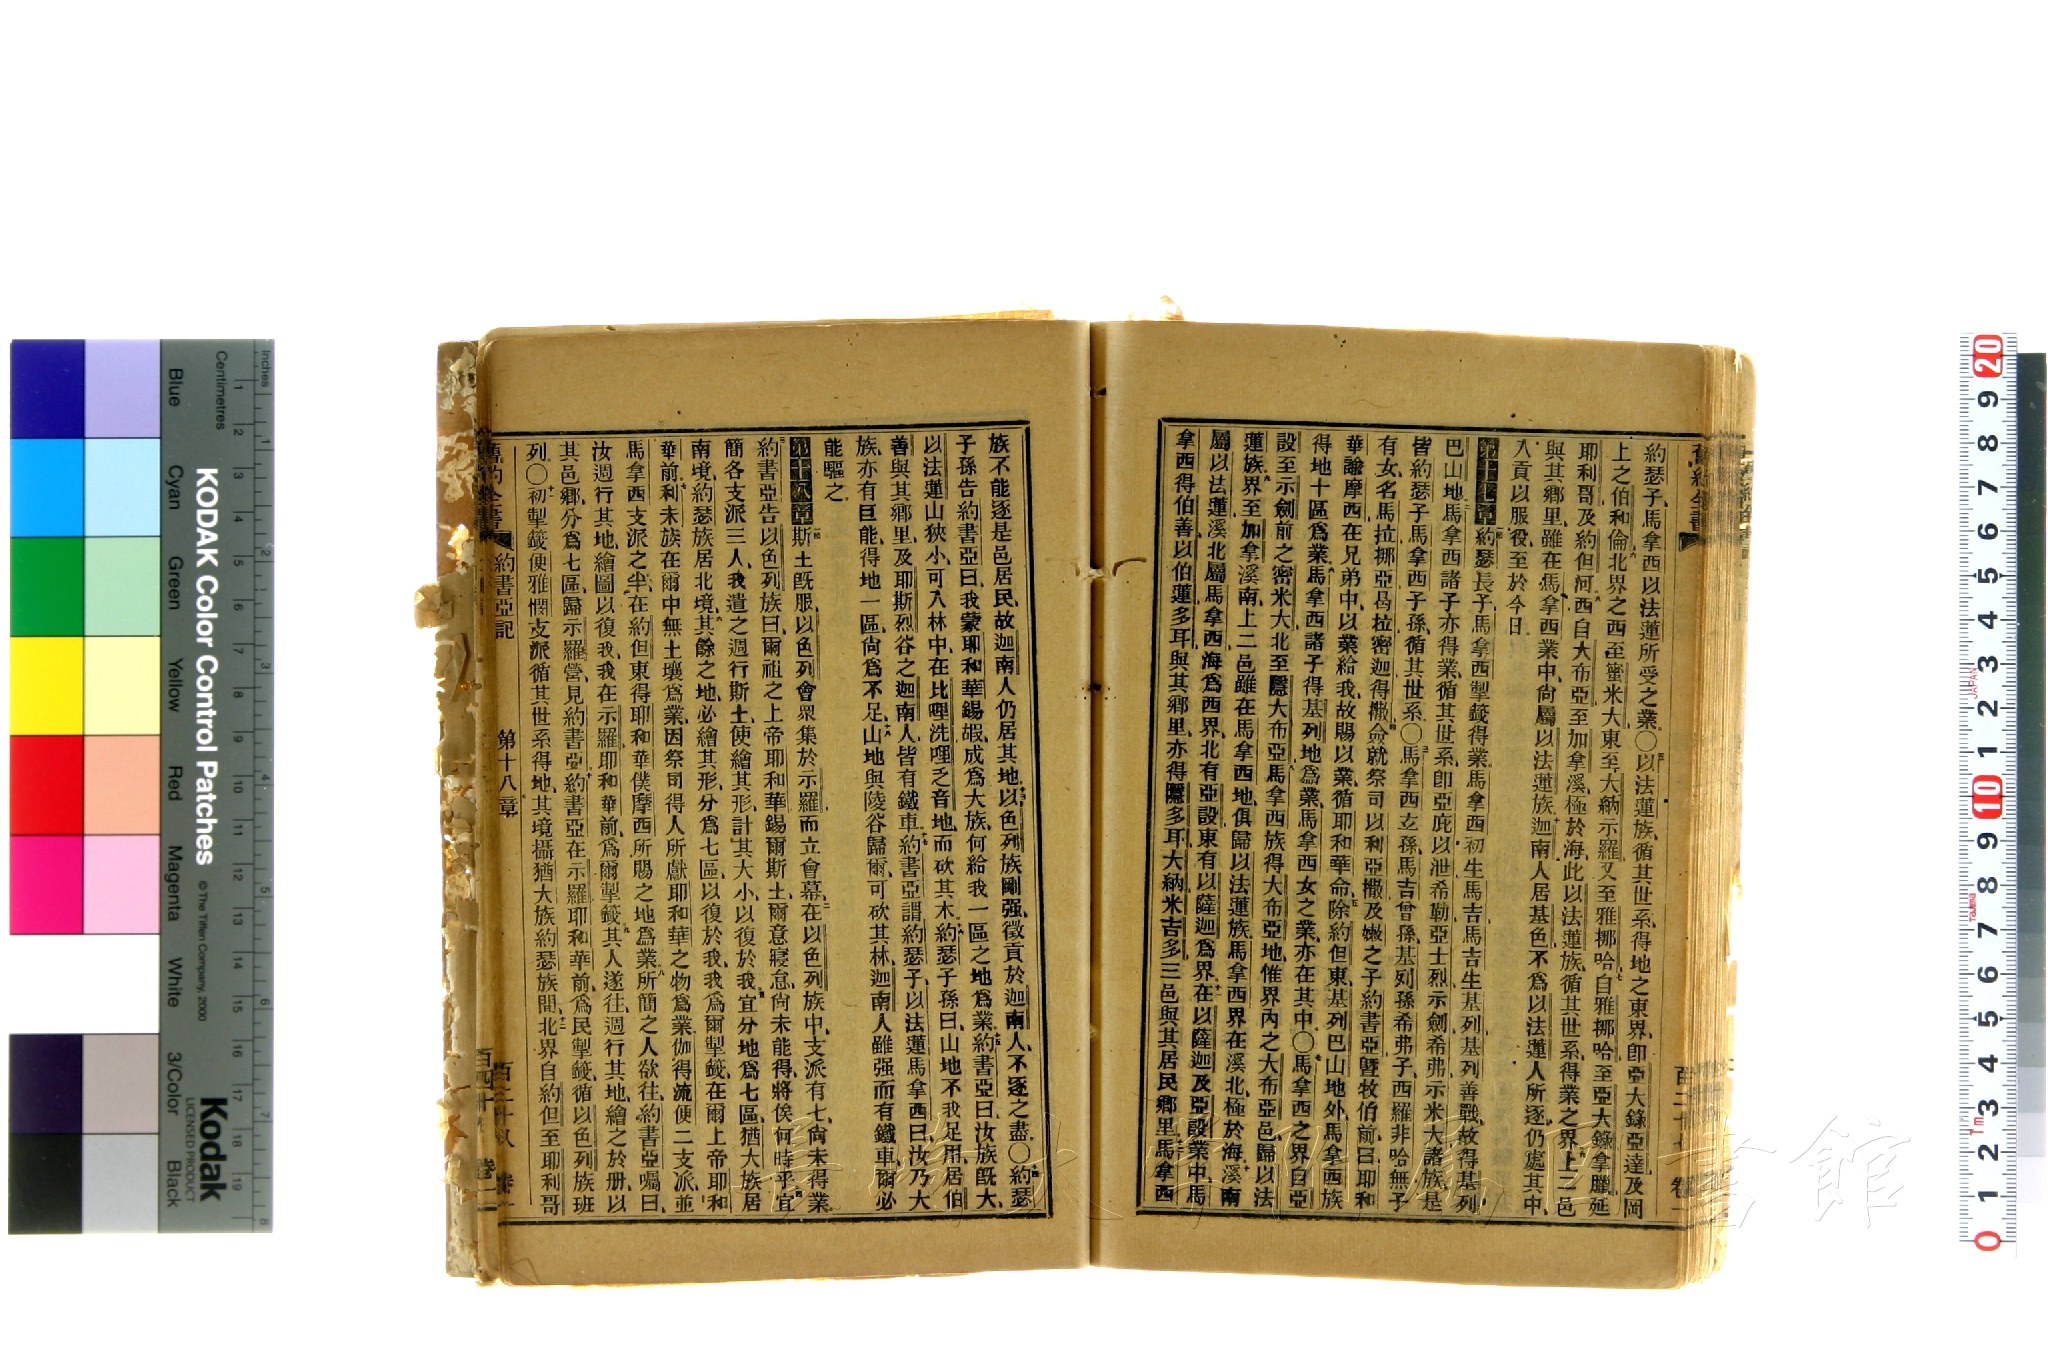 約瑟子馬拿西以法蓮所受之業○以法蓮族循其世系得地之東界卽亞大錄亞達及岡
上之伯和倫北界之西至蜜米大東至大納示羅又至雅挪哈自雅挪哈至亞大錄拿臘延
耶利哥及約但河西自大布亞至加拿溪極於海此以法蓮族循其世系得業之界上二邑
與其鄉里雖在馬拿西業中尙屬以法蓮族迦南人居基色不爲以法蓮人所逐仍處其中
入貢以服役至於今日
第十七章約瑟長子馬拿西掣籤得業馬拿西初生馬吉馬吉生基列基列善戰故得基列
巴山地馬拿西諸子亦得業循其世系卽亞庇以泄希勒亞士烈示劍希弗示米大諸族是
皆約瑟子馬拿西子孫循其世系○馬拿西玄孫馬吉曾孫基列孫希弗子西羅非哈無子
有女名馬拉挪亞曷拉密迦得撒僉就祭司以利亞撒及嫩之子約書亞暨牧伯前曰耶和
華諭摩西在兄弟中以業給我故賜以業循耶和華命除約但東基列巴山地外馬拿西族
得地十區爲業馬拿西諸子得基列地爲業馬拿西女之業亦在其中○馬拿西之界自亞
設至示劍前之密米大北至隱大布亞馬拿西族得大布亞地惟界內之大布亞邑歸以法
蓮族界至加拿溪南上二邑雖在馬拿西地俱歸以法蓮族馬拿西界在溪北極於海溪南
屬以法蓮溪北屬馬拿西海爲西界北有亞設東有以薩迦爲界在以薩迦及亞設業中馬
拿西得伯善以伯蓮多耳與其鄉里亦得隱多耳大納米吉多三邑與其居民鄉里馬拿西
族不能逐是邑居民故迦南人仍居其地以色列族剛强徵貢於迦南人不逐之盡○約瑟
子孫告約書亞曰我蒙耶和華錫嘏成爲大族何給我一區之地爲業約書亞曰汝族旣大
以法蓮山狹小可入林中在比哩洗哩乏音地而砍其木約瑟子孫曰山地不我足用居伯
善與其鄉里及耶斯烈谷之迦南人皆有鐵車約書亞謂約瑟子以法蓮馬拿西曰汝乃大
族亦有巨能得地一區尙爲不足山地與陵谷歸爾可砍其林迦南人雖强而有鐵車爾必
能驅之
第十八章斯土旣服以色列會衆集於示羅而立會幕在以色列族中支派有七尙未得業
約書亞告以色列族曰爾祖之上帝耶和華錫爾斯土爾意寢怠尙未能得將俟何時乎宜
簡各支派三人我遣之週行斯土使繪其形計其大小以復於我宜分地爲七區猶大族居
南境約瑟族居北境其餘之地必繪其形分爲七區以復於我我爲爾掣籤在爾上帝耶和
華前利未族在爾中無土壤爲業因祭司得人所獻耶和華之物爲業伽得流便二支派並
馬拿西支派之半在約但東得耶和華僕摩西所賜之地爲業所簡之人欲往約書亞囑曰
汝週行其地繪圖以復我我在示羅耶和華前爲爾掣籤其人遂往週行其地繪之於册以
其邑鄉分爲七區歸示羅營見約書亞約書亞在示羅耶和華前爲民掣籤循以色列族班
列○初掣籤便雅憫支派循其世系得地其境攝猶大族約瑟族間北界自約但至耶利哥
約書亞記 第十八章